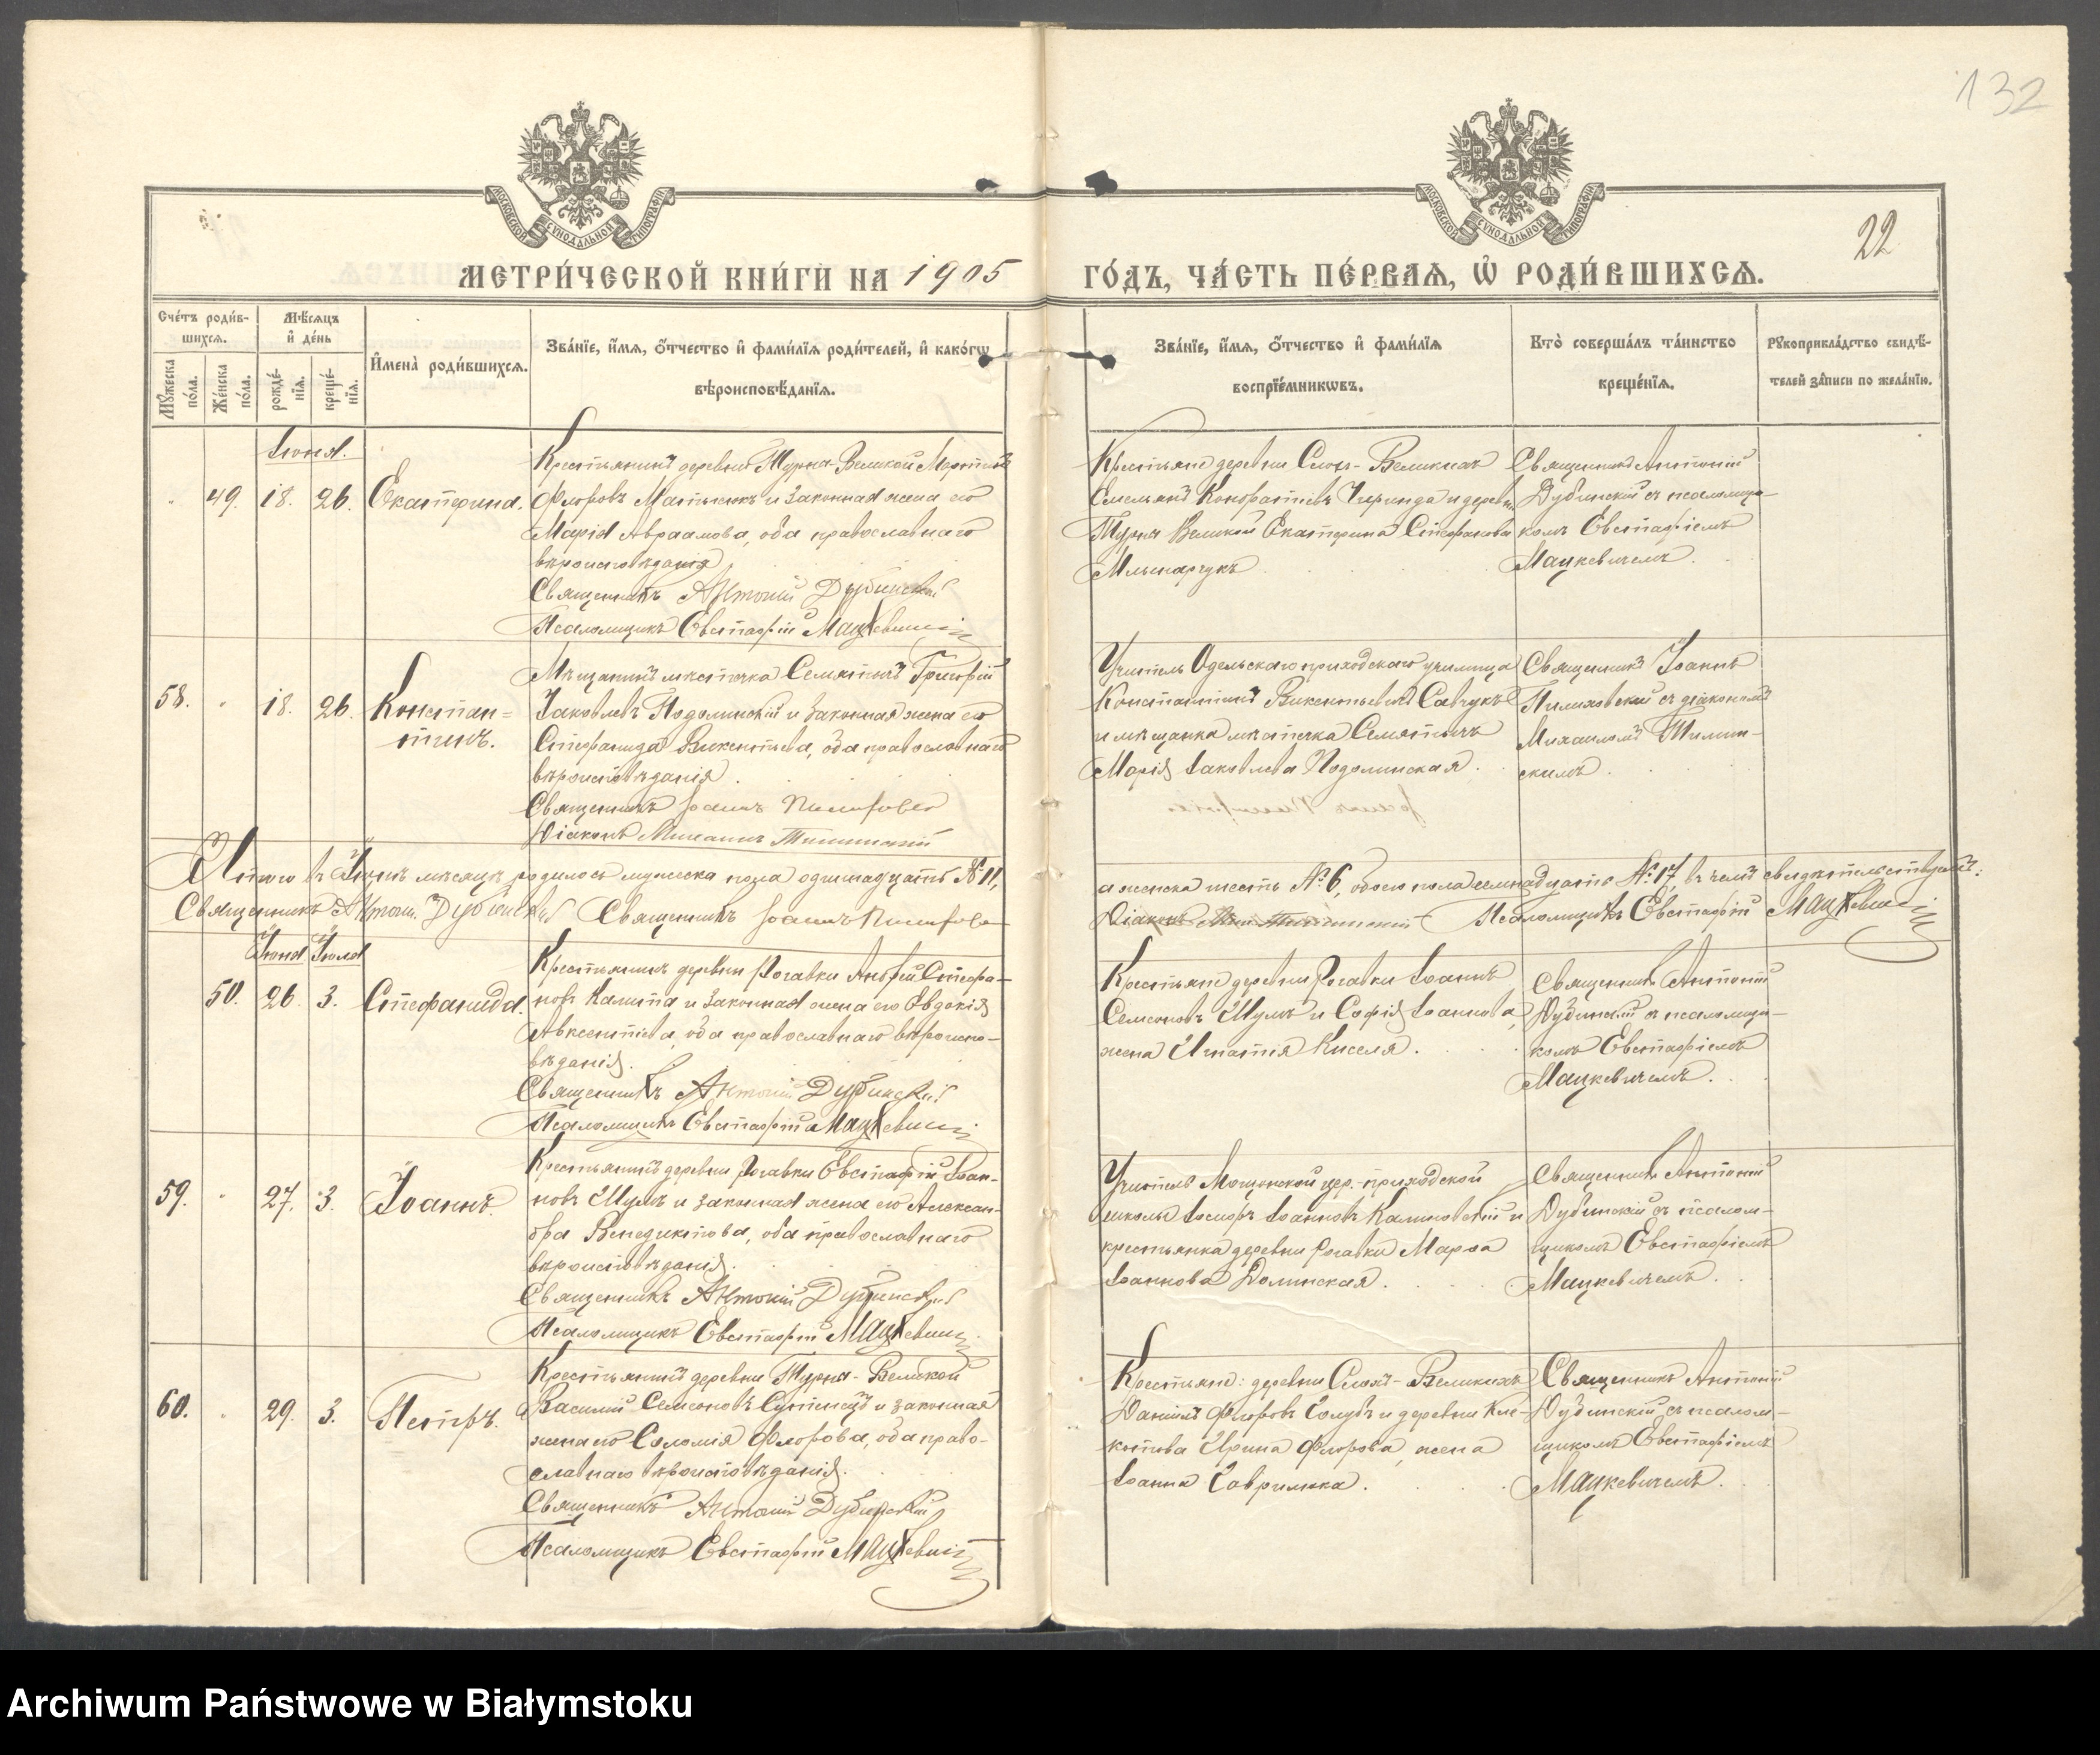 132
МОСКОВСКОЙ СѴНОДАЛЬНОЙ ТИПОГРАФІИ
МОСКОВСКОЙ СѴНОДАЛЬНОЙ ТИПОГРАФІИ
22
МЕТРИ́ЧЕСКОЙ КНИ́ГИ НА 1905
ГО́ДЪ, ЧА́СТЬ ПЕ́РВАѦ, Ѡ҆ РОДИ́ВШИХСѦ.
Сче́тъ роди́в-
шихсѧ.
Мѣ́сѧцъ
и҆ де́нь
Мꙋ́жеска по́ла.
Же́нска по́ла.
рожде́-
нїѧ.
креще́-
нїѧ.
И҆мена̀ роди́вшихсѧ.
Зва́нїе, и҆́мѧ, ѻ҆́тчество и҆ фами́лїѧ роди́телей, и҆ како́гѡ
вѣроисповѣ́данїѧ.
Зва́нїе, и҆́мѧ, ѻ҆́тчество и҆ фами́лїѧ
воспрїе́мникѡвъ.
Кто̀ соверша́лъ та́инство
креще́нїѧ.
Рꙋкоприкла́дство свидѣ́-
телей за́писи по жела́нїю.
Іюня.
49. 18. 26. Екатерина.
Крестьянинъ деревни Турна-Великой Мартинъ
Флоровъ Матысюкъ и законная жена его
Марія Авраамова, оба православнаго
вѣроисповѣданія
Священникъ Антоній Дубинскій
Псаломщикъ Евстафій Мацкевичъ
Крестьяне деревни Слохъ-Великихъ
Емельянъ Конофатіевъ Чиринда и деревни
Турна Великой Екатерина Стефанова
Мльнарчукъ
Священникъ Антоній
Дубинскій съ псаломщи-
комъ Евстафіемъ
Мацкевичемъ.
58. 18. 26. Констан=
тинъ.
Мѣщанинъ мѣстечка Семятичъ Григорій
Іаковлевъ Подолинскій и законная жена его
Стефанида Викентьева, оба православнаго
вѣроисповѣданія.
Священникъ Іоаннъ
Діаконъ Михаилъ
Учитель Одельскаго приходскаго училища
Константинъ Викентьевичъ Савчукъ
и мѣщанка мѣстечка Семятичъ
Марія Іаковлева Подолинская.
Священникъ Іоаннъ
съ діакономъ
Михаиломъ
скимъ.
Итого въ Іюнѣ мѣсяцѣ родилось мужеска пола одиннадцать №11,
а женска шесть №6, обоего пола семнадцать №17, въ чемъ свидѣтельствуемъ:
Священникъ Антоній Дубинскій Священникъ Іоаннъ
Діаконъ Псаломщикъ Евстафій Мацкевичъ
Іюня Іюля
50. 26. 3. Стефанида.
Крестьянинъ деревни Рогавки Андрей Стефа-
новъ Калита и законная жена его Евдокія
Авксентіева, оба православнаго вѣроиспо-
вѣданія.
Священникъ Антоній Дубинскій
Псаломщикъ Евстафій Мацкевичъ
Крестьяне деревни Рогавки Іоаннъ
Семеновъ Шумъ и Софія Іоаннова,
жена Игнатія Киселя.
Священникъ Антоній
Дубинскій съ псаломщи-
комъ Евстафіемъ
Мацкевичемъ.
59. 27. 3. Іоаннъ.
Крестьянинъ деревни Рогавки Евстафій Іоан-
новъ Шумъ и законная жена его Алексан-
дра Венедиктова, оба православнаго
вѣроисповѣданія.
Священникъ Антоній Дубинскій
Псаломщикъ Евстафій Мацкевичъ
Учитель Мощонской цер.-приходской
школы Іосифъ Іоанновъ Калиновскій и
крестьянка деревни Рогавки Марѳа
Іоаннова Долинская.
Священникъ Антоній
Дубинскій съ псалом-
щикомъ Евстафіемъ
Мацкевичемъ.
60. 29. 3. Петръ.
Крестьянинъ деревни Турна-Великой
Василій Семеновъ и законная
жена его Соломія Флорова, оба право-
славнаго вѣроисповѣданія.
Священникъ Антоній Дубинскій
Псаломщикъ Евстафій Мацкевичъ
Крестьяне: деревни Слохъ-Великихъ
Даніилъ Флоровъ Голубъ и деревни Кли-
котова Ирина Флорова, жена
Іоанна Гаврилюка.
Священникъ Антоній
Дубинскій съ псалом-
щикомъ Евстафіемъ
Мацкевичемъ.
Archiwum Państwowe w Białymstoku